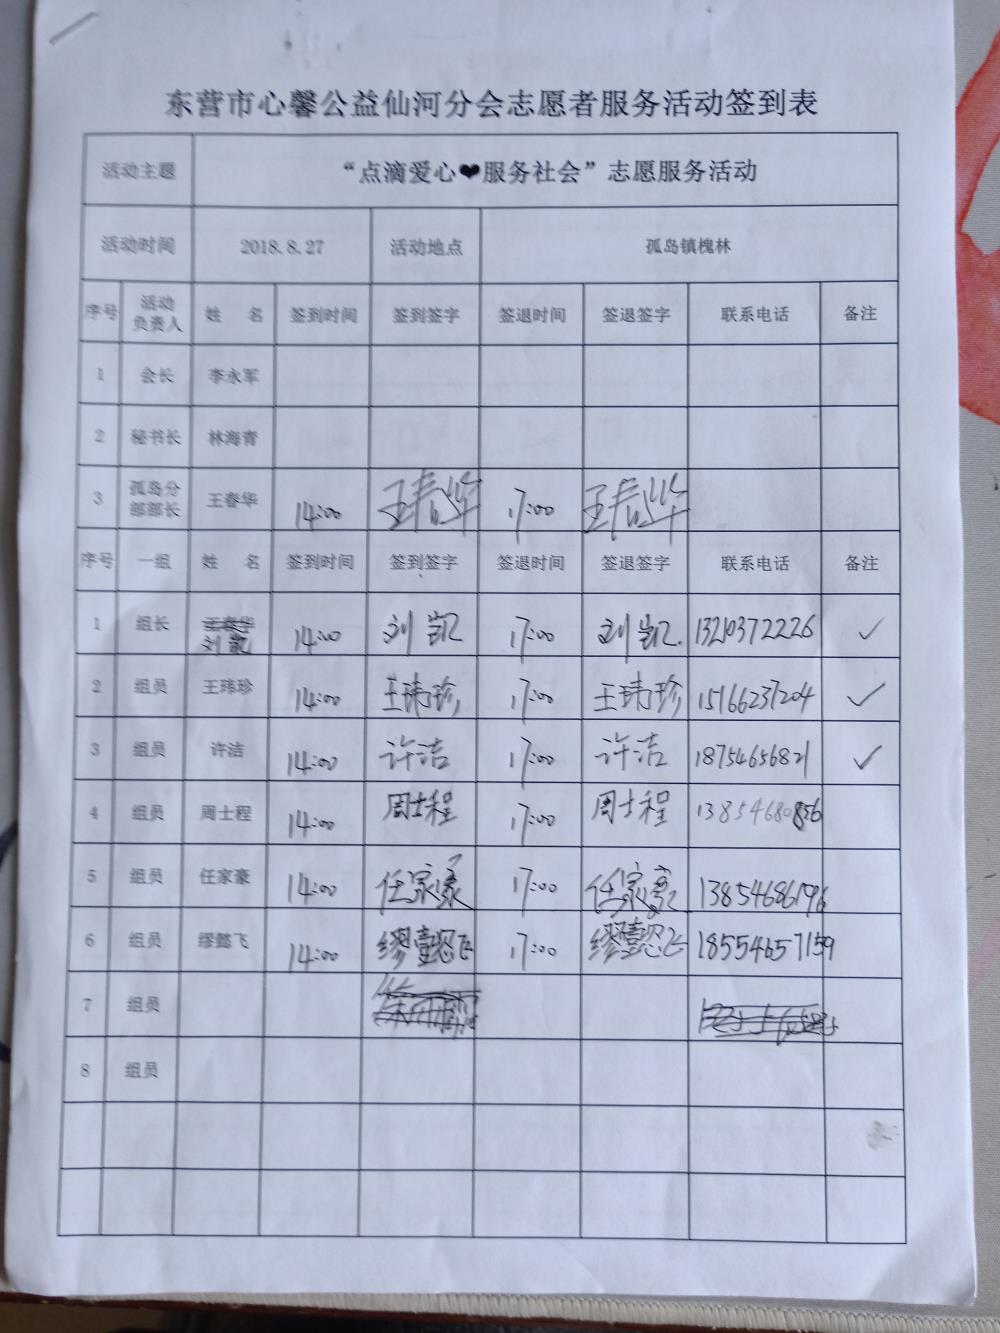 东营市心馨公益仙河分会志愿者服务活动签到表
活动主题 “点滴爱心❤服务社会”志愿服务活动
活动时间 2018.8.27 活动地点 孤岛镇槐林
序号 活动负责人 姓 名 签到时间 签到签字 签退时间 签退签字 联系电话 备注
1 会长 李永军
2 秘书长 林海青
3 孤岛分部部长 王春华 14:00 王春华 17:00 王春华
序号 一组 姓 名 签到时间 签到签字 签退时间 签退签字 联系电话 备注
1 组长 王春华 刘凯 14:00 刘凯 17:00 刘凯. 13210372226 ✓
2 组员 王玮珍 14:00 王玮珍 17:00 王玮珍 15166237204 ✓
3 组员 许洁 14:00 许洁 17:00 许洁 18754656821 ✓
4 组员 周士程 14:00 周士程 17:00 周士程 13854680856
5 组员 任家豪 14:00 任家豪 17:00 任家豪 13854686196
6 组员 缪懿飞 14:00 缪懿飞 17:00 缪懿飞 18554657159
7 组员
8 组员